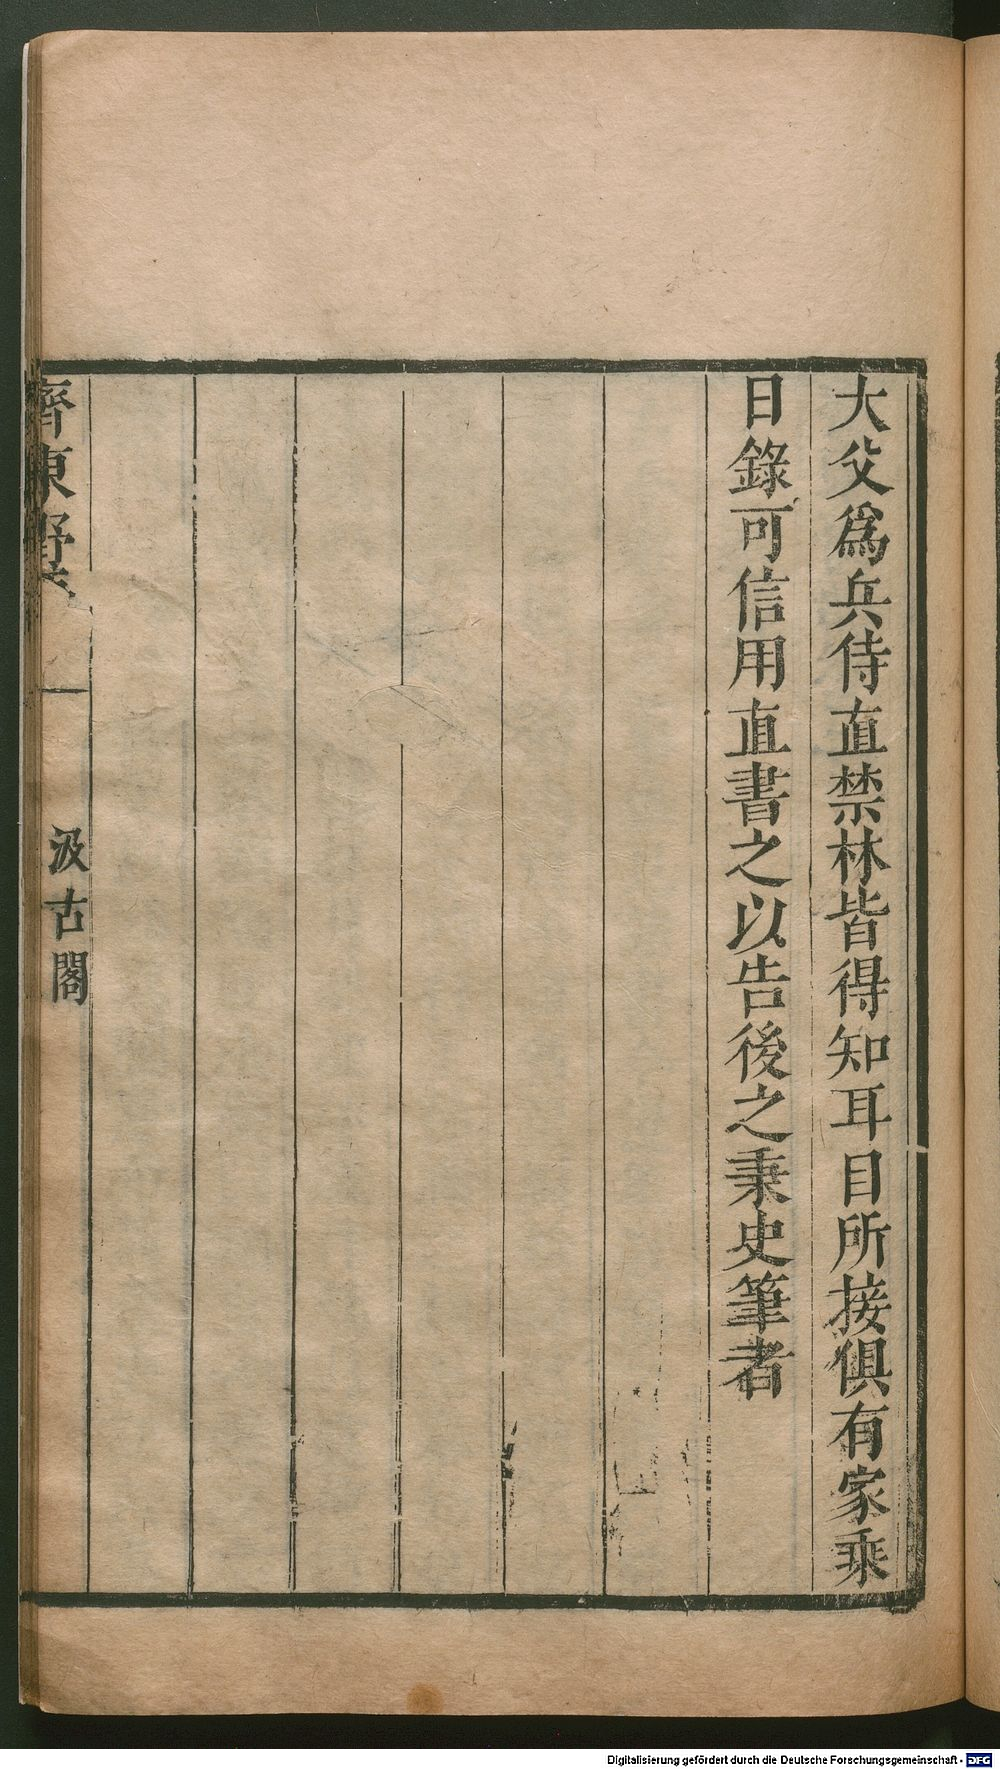 大父爲兵侍直禁林皆得知耳目所接俱有家乘
日錄可信用直書之以告後之秉史筆者
齊東野
汲古閣
Digitalisierung gefördert durch die Deutsche Forschungsgemeinschaft - DFG